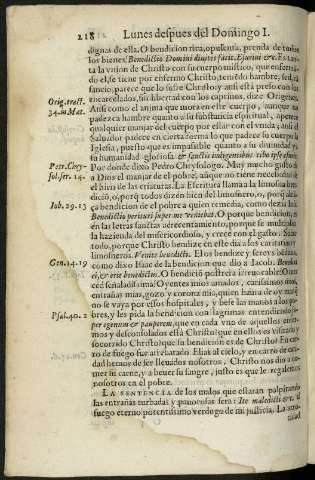 218 Lunes despues del Domingo I.
dignas de ella. O bendicion rica, opulenta, preñda de todos
los bienes! Benedictio Domini divites facit. Ejurivi &c. Es tan-
ta la vnion de Christo con su cuerpo mistico, que enferman-
do el, se tiene por enfermo Christo, teniendo hambre, sed, i
sancio, parece que lo sufre Christo: y ansi està preso con los
Orig. tract. encarcelados, sin libertad con los captivos, dize Origenes.
34. in Mat. Ansi como el anima que mora en este cuerpo, aunque no
padezca hambre quanto a su substancia espiritual, apetece
qualquier manjar del cuerpo por estar con el vnida; ansi el
Salvador padece en cierta forma lo que padece su cuerpo la
Iglesia, puesto que es impasible quanto a su divinidad y à
su humanidad gloriosa. Et sanctis indigentibus cibo ipse
Petr. Chry- Por donde dixo Pedro Chrysologo. Muy mucho gusto da
sol. ser. 14. a Dios el manjar de el pobre; aunque no tiene necessidad de
el bien de las criaturas. La Escritura llama a la limosna ben-
Iob. 29. 13 dicion, porq̃ todos dizen bien del limosnero, o, porq̃ alcã-
ça bendicion de el pobre a quien remedia, como dezia Iob.
Benedictio perituri super me veniebat. O porque bendicion,
en las letras sanctas acrecentamiento, porque se multiplica
la hazienda del misericordioso, y crece con el gasto: O sobre
todo, porque Christo bendize en este dia a los caritativos y
limosneros. Venite benedicti. El os bendize y sereys benditos,
Gen. 14. 19 como dixo Isaac de la bendicion que dio a Iacob. Benedixi
ei, & erit benedictus. O bendiciõ postrera irrevocable! O mer-
ced señaladissima! O yentes mios amados, carissimos mios,
entrañas mias, gozo, y corona mia, quien habra de oy mas q̃
no se vaya por essos hospitales, y bese las manos a los po-
Psal. 40. 2 bres, y les pida la bendicion con lagrimas entendiendo su-
per egenum & pauperem, que en cada vno de aquellos enfer-
mos y desconsolados està Christo! que en ellos es visitado y
socorrido Christo! que su bendicion es de Christo! En car-
ro de fuego fue arrebatado Elias al cielo, y en carro de cari-
dad hemos de ser llevados nosotros. Christo nos dio a co-
mer su carne, y a bever su sangre, justo es que le regalemos
nosotros en el pobre.
LA SENTENCIA de los malos que estaran palpitando
las entrañas turbadas y pavorosas sera: Ite maledicti &c. id
fuego eterno potentissimo verdugo de mi justicia. La